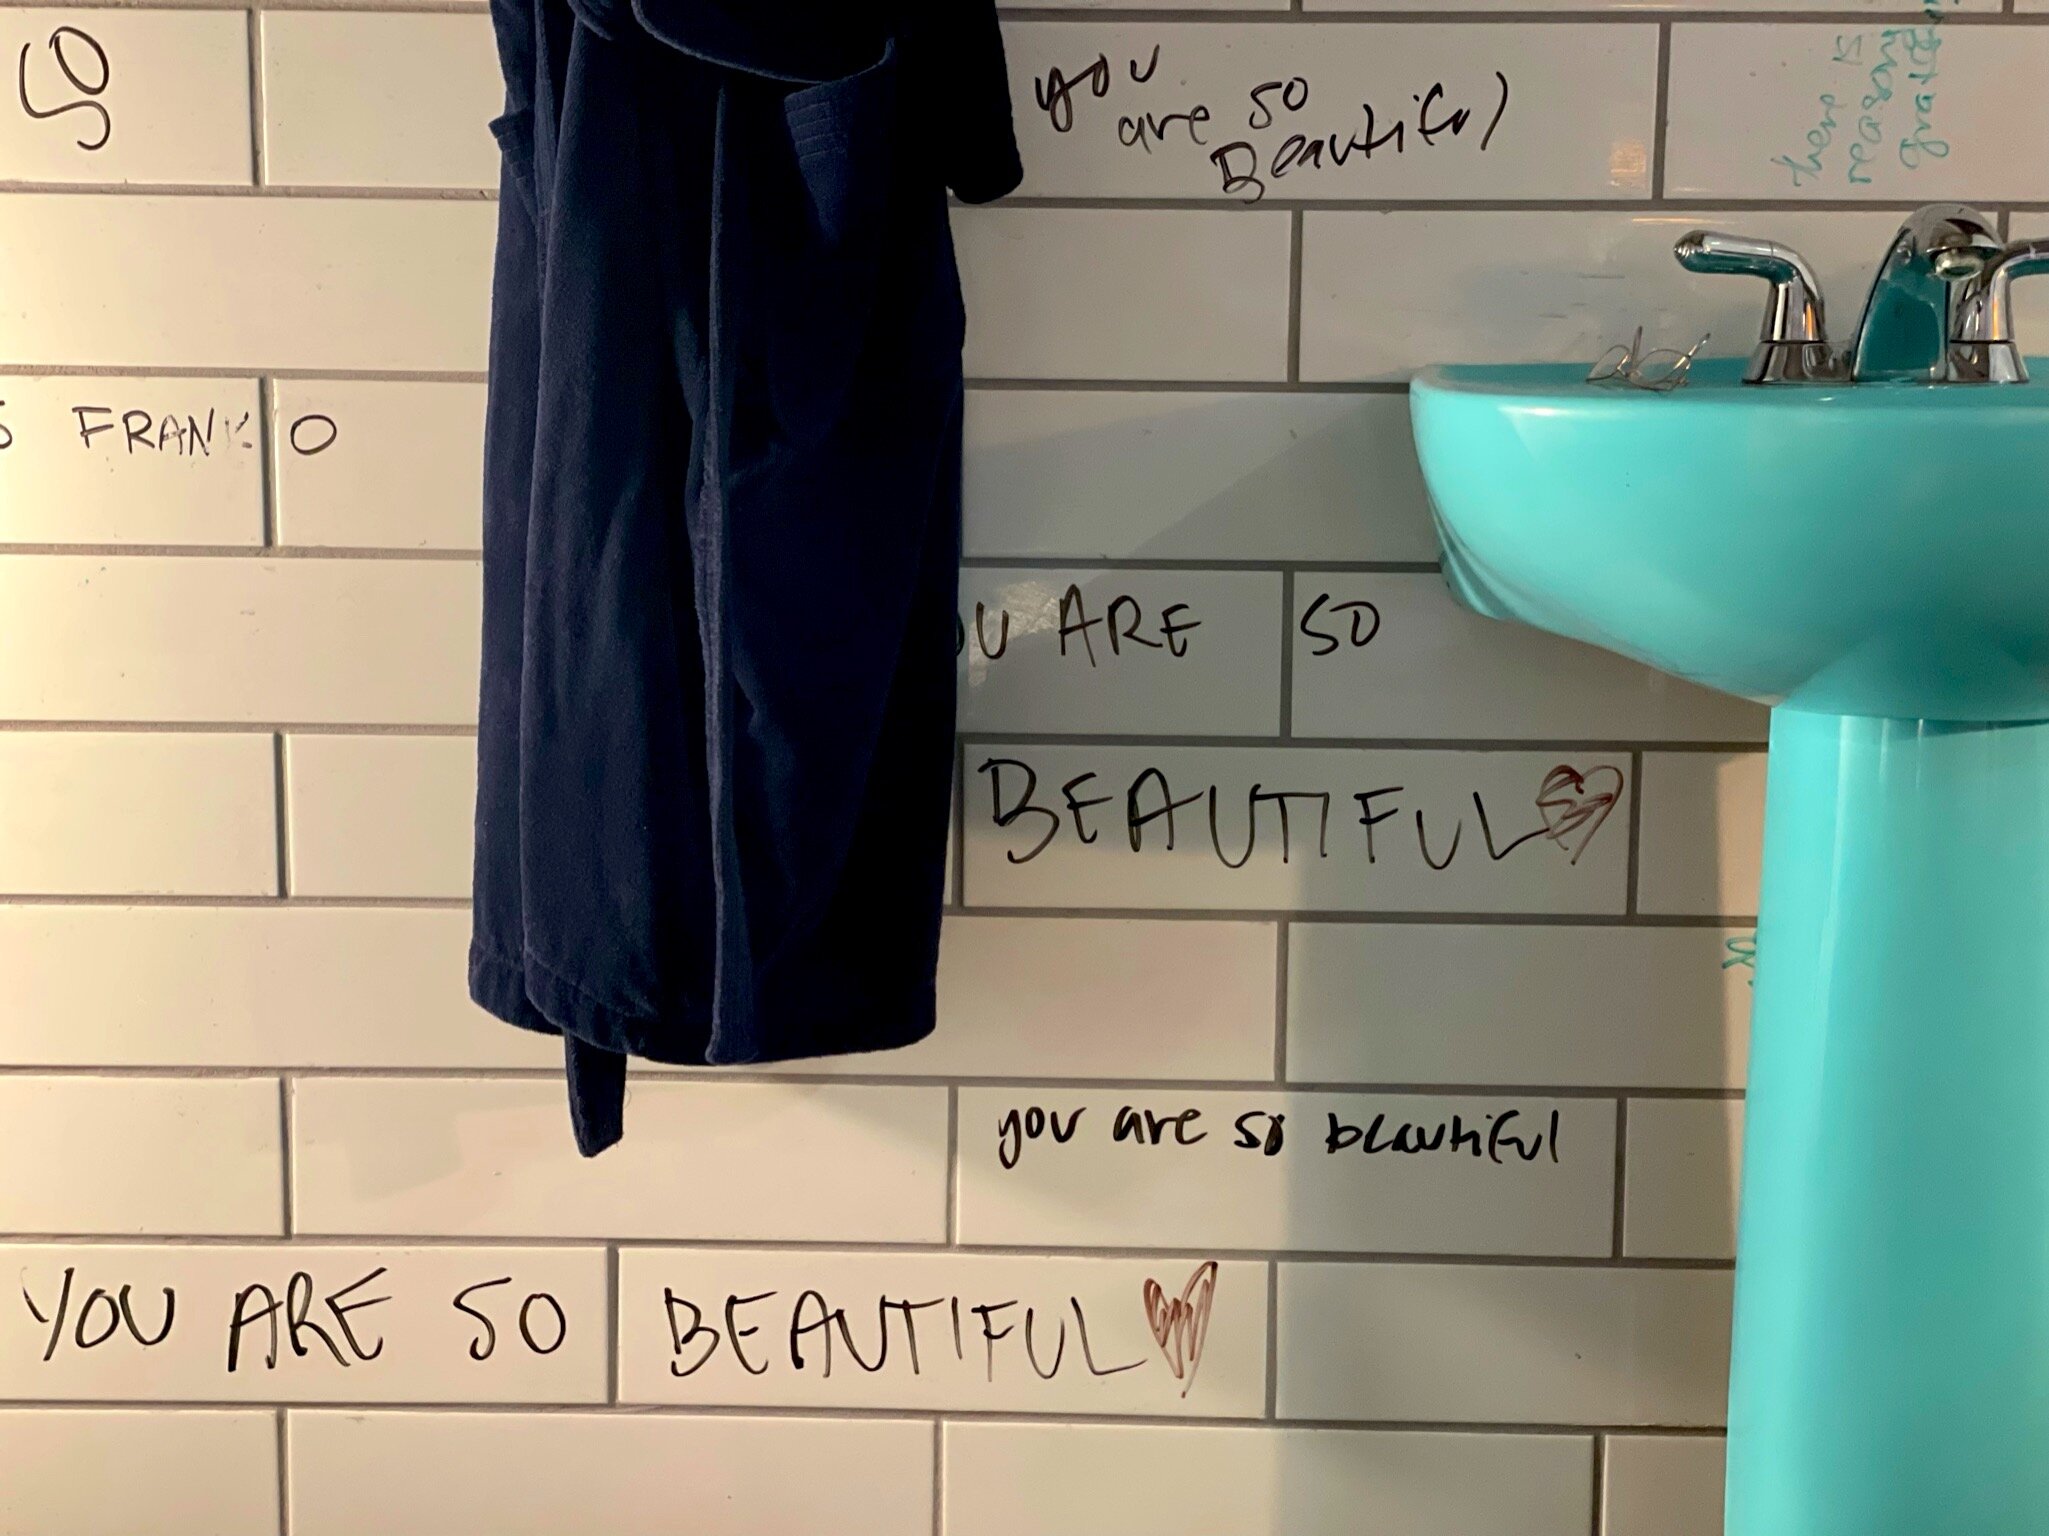 SO
you
are so
Beautiful
there is
reason
grateful
FRANK O
U ARE SO
BEAUTIFUL
you are so beautiful
YOU ARE SO BEAUTIFUL